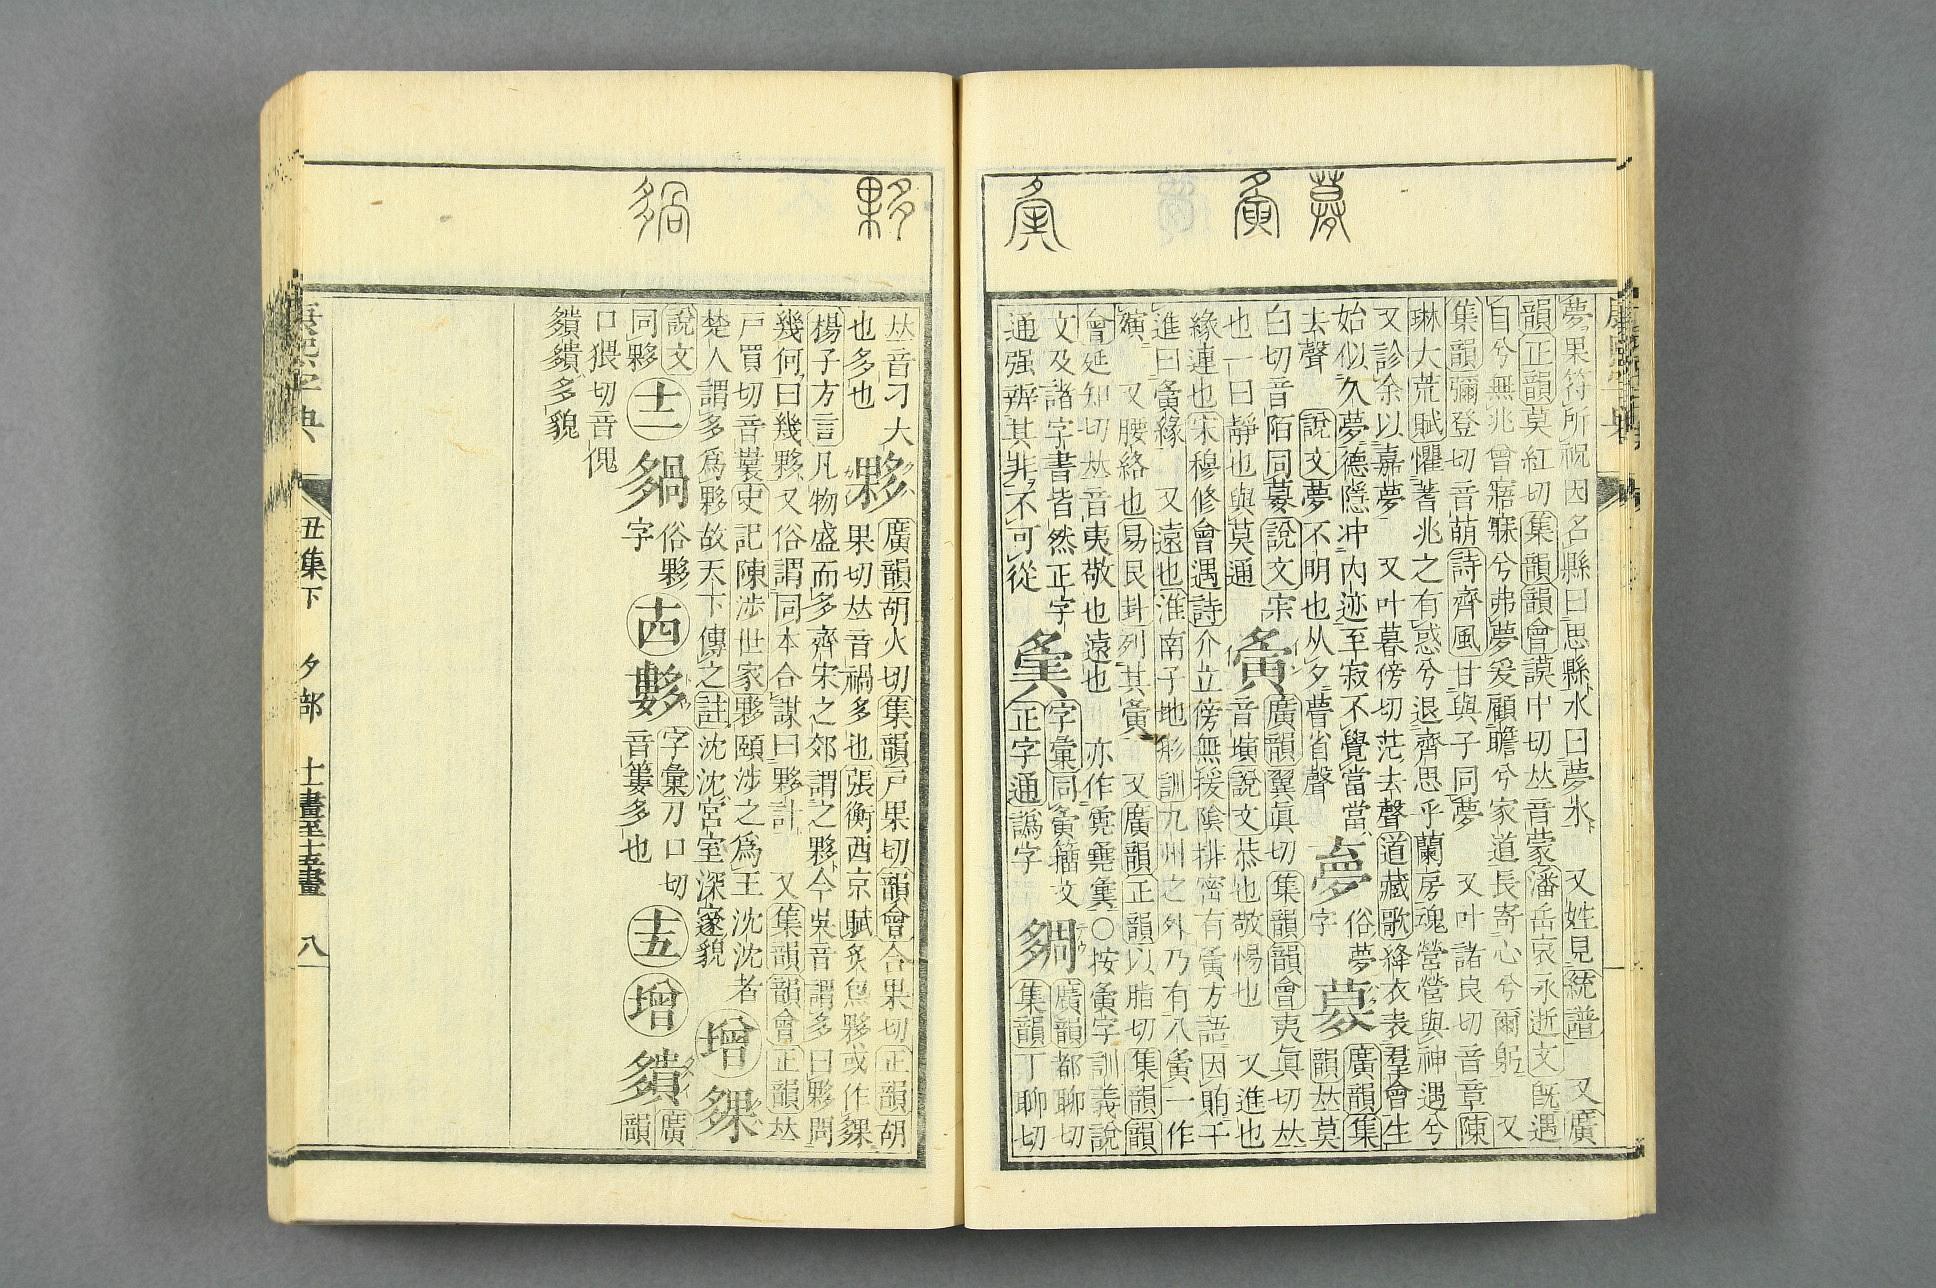 夢果符所祝因名縣曰思縣水曰夢水 又姓見統譜 又廣
韻正韻莫紅切集韻韻會謨中切𠀤音蒙潘岳哀永逝文旣遇
目兮無兆曾寤寐兮弗夢爰顧瞻兮家道長寄心兮爾躬 又
集韻彌登切音萌詩齊風甘與子同夢 又叶諸良切音章陳
琳大荒賦懼蓍兆之有惑兮退齊思乎蘭房魂營營與神遇兮
又診余以嘉夢 又叶暮傍切茫去聲道藏歌絳衣表羣會生
始似久夢德隱冲內迹至寂不覺當當
去聲 說文夢不明也从夕瞢省聲
夢
俗夢
字
募
廣韻集
韻𠀤莫
白切音陌同募說文宗
也一曰靜也與莫通
夤
廣韻翼眞切集韻韻會夷眞切𠀤
音㙙說文恭也敬惕也 又進也
緣連也宋穆修會遇詩介立傍無援陰排密有夤方語因賄千
進曰夤緣 又遠也淮南子地形訓九州之外乃有八夤一作
㙙 又腰絡也易艮卦列其夤 又廣韻正韻以脂切集韻韻
會延知切𠀤音夷敬也遠也 亦作〇按夤字訓義說
文及諸字書皆然正字
通强辨其非不可從
字彙同夤籀文
正字通譌字
廣韻都聊切
集韻丁聊切
𠀤音刁大
也多也
夥
廣韻胡火切集韻戸果切韻會合果切正韻胡
果切𠀤音禍多也張衡西京賦炙炰夥或作
楊子方言凡物盛而多齊宋之郊謂之夥今吳音謂多曰夥問
幾何曰幾夥又俗謂同本合謀曰夥計 又集韻韻會正韻𠀤
戸買切音史記陳涉世家夥頤涉之爲王沈沈者
楚人謂多爲夥故天下傳之註沈沈宮室深邃貌
增
夥
說文
同夥
十二
俗夥
字
十四
字彙刀口切
音簍多也
十五
增
廣
韻
口猥切音傀
多貌
康熙字典
丑集下 夕部 十一畫至十五畫 八